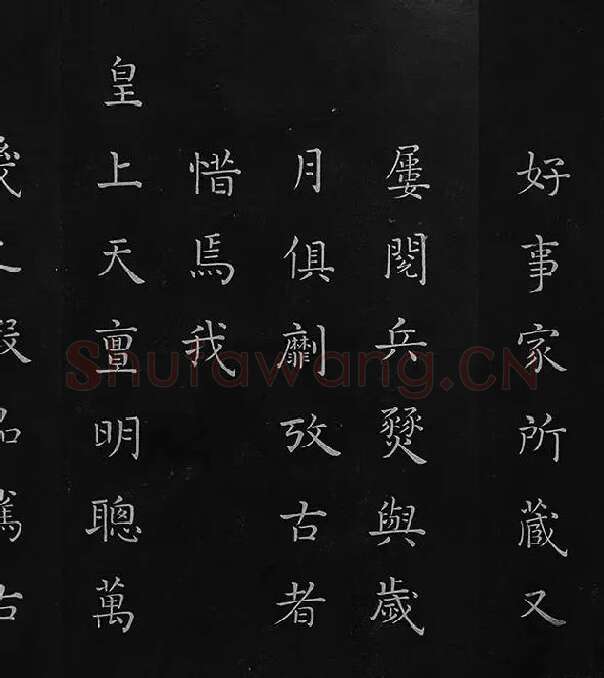 好事家所藏又
屢閲兵燹與歲
月俱劘攷古者
惜焉我
皇上天亶明聰萬
Shufawang.CN